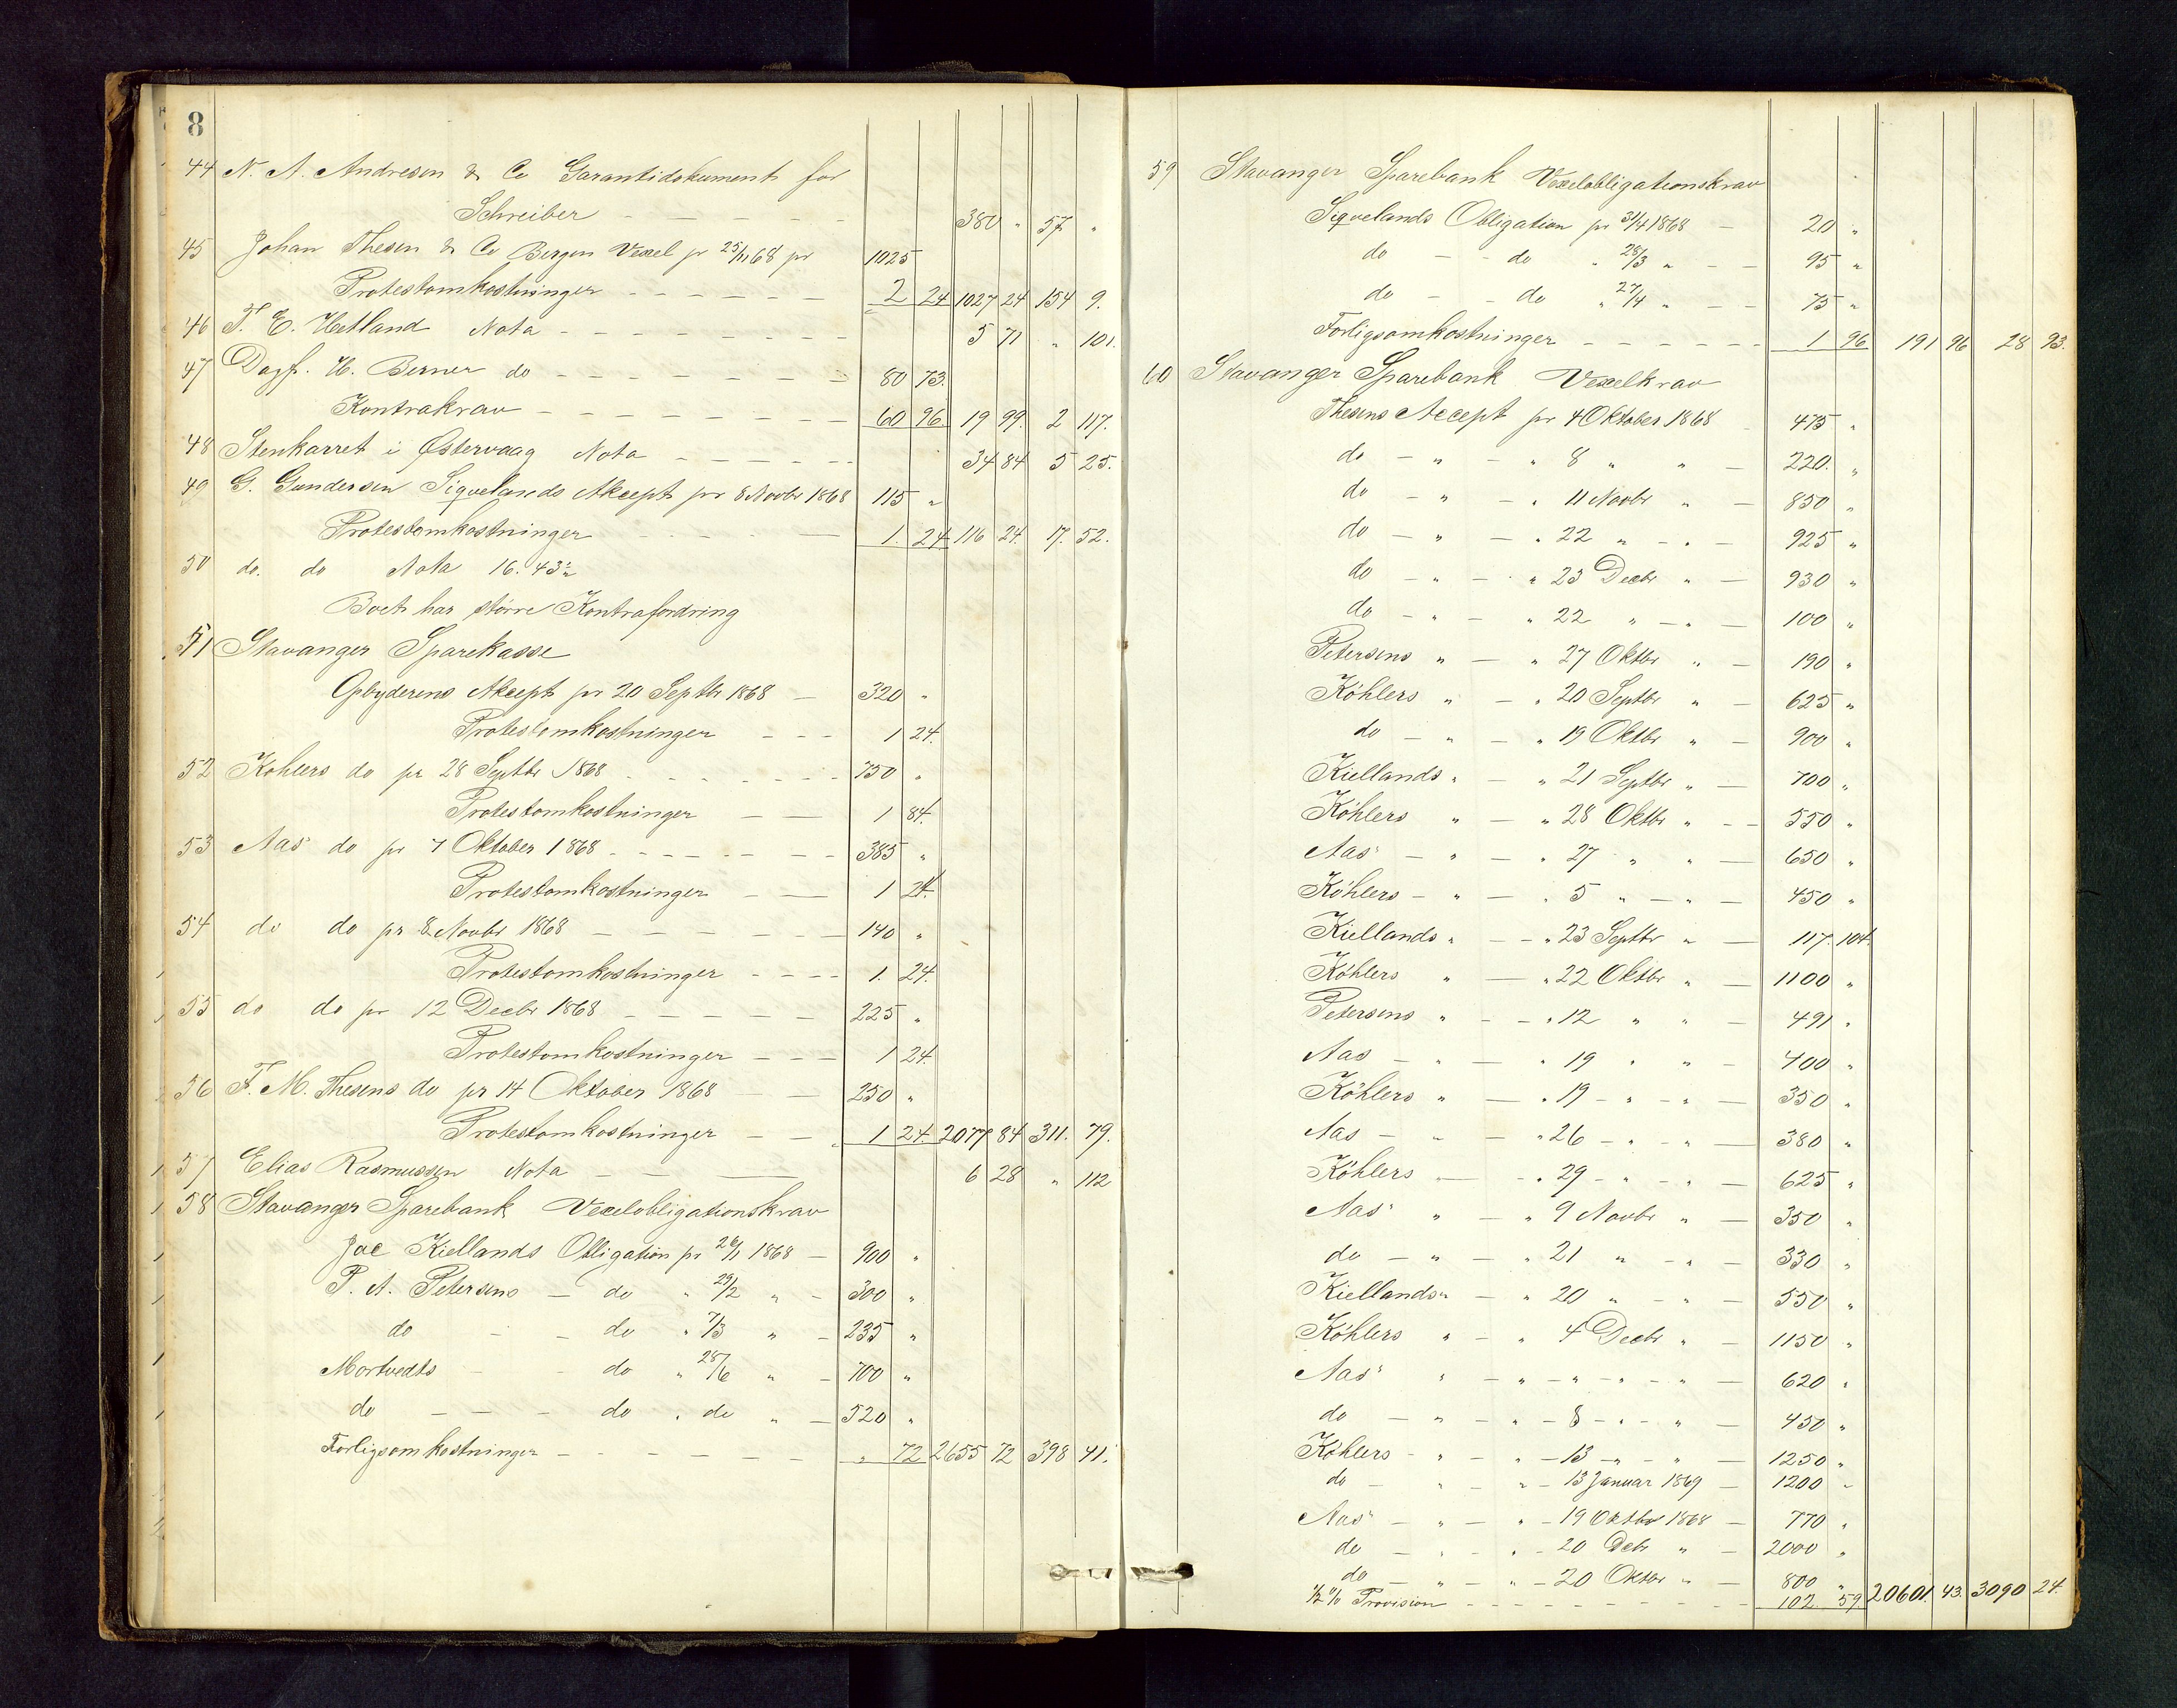 8
44 N. A. Andresen & Co Garantidokument for
Schreiber - - - - - 380 " 57 "
45 Johan Thesen & Co Bergen Vexel pr 25/11 68 pr 1025
Protestomkostninger - - - - - - 2 24 1027 24 154 9.
46 T. E. Hetland Nota - - - - - - - - 5 71 " 101.
47 Dagf. H. Berner do - - - - - - - 80 73.
Kontrakrav - - - - - - - 60 96 19 99. 2 117.
48 Stenkarret i Østervaag Nota - - - - - 34 84 5 25.
49 G. Gundersen Siqvelands Akcept pr 8 Novbr 1868 115 "
Protestomkostninger - - - - - 1. 24 116 24. 17. 52.
50 do. do Nota 16. 43 "
Boet har større Kontrafordring
51 Stavanger Sparekasse
Opbyderens Akcept pr 20 Septbr 1868 - 320 "
Protestomkostninger - - - 1 24.
52 Kohlers do pr 28 Septbr 1868 - - - - - - 750 "
Protestomkostninger - - 1 84.
53 Aas' do pr 7 Oktober 1868 - - - - - - 385 "
Protestomkostninger - - 1 24.
54 do do pr 8 Novbr 1868 - - - - - - 140 "
Protestomkostninger - - - - 1. 24.
55 do do pr 12 Decbr 1868 - - - - - 225 "
Protestomkostninger - - - 1 24.
56 F. M. Thesens do pr 14 Oktober 1868 - - 250 "
Protestomkostninger - - 1 24 2077 84 311. 79.
57 Elias Rasmussen Nota - - - 6 28 " 112
58 Stavanger Sparebank Vexelobligationskrav
Jac Kiellands Obligation pr 26/1 1868 - 900 "
P. A. Petersens - do " 29/2 " - 300 "
do - - do " 7/3 " - 235 "
Mortvedts - - do " 28/6 " - 700 "
do - - - do " do " - 520 "
Forligsomkostninger - - - - - - " 72 2655 72 398 41.
59 Stavanger Sparebank Vexelobligationskrav
Siqvelands Obligation pr 31/4 1868 - 20 "
do - - do " 28/3 " - - 95 "
do - - do " 27/4 " - - 75 "
Forligsomkostninger - - - - - - 1 96 191 96 28 93.
60 Stavanger Sparebank Vexelkrav
Thesens Accept pr 4 Oktober 1868 475 "
do - " - " 8 " " - 220. "
do - " - " 11 Novbr " - 850 "
do - " - " 22 " - " - 925 "
do - " - " 23 Decbr " - 930 "
do - " - " 22 " - " - 100 "
Petersens " - " 27 Oktbr " - 190 "
Köhlers " - " 20 Septbr " - 625 "
do - " - " 19 Oktbr " - 900 "
Kiellands " - " 21 Septbr " - 700 "
Köhlers " - " 28 Oktbr " - - 550 "
Aas' - " - " 27 " " - 650 "
Köhlers - " - " 5 " - " - 450 "
Kiellands " - - " 23 Septbr " - 117. 104.
Köhlers " - " 22 Oktbr " - 1100 "
Petersens " - - " 12 " " - 491 "
Aas - " - " 19 " " - 400 "
Köhlers " - " 19 - " - " - 350 "
Aas - " - " 26 - " - " - 380 "
Köhlers - - " 29 - " - " - 625 "
Aas' " - " 9 Novbr " - 350 "
do - " - " 21 " - " - 330 "
Kiellands " - " 20 " - " - 550 "
Köhlers " - " 4 Decbr " - 1150 "
Aas' " - " - " - " - " - 620 "
do - " - " - 8 - " - " - 450 "
Köhlers - " - " - 13 - " - " - 1250 "
do - " - " - 13 Januar 1869 - 1200 "
Aas' - " - " - 19 Oktbr 1868 - 770 "
do - " - " - 20 Debr " - 2000 "
do - " - " - 20 Oktbr " - 800 "
1/2 % Provision - - - - - - - - - 102. 59. 20601. 43. 3090 24.